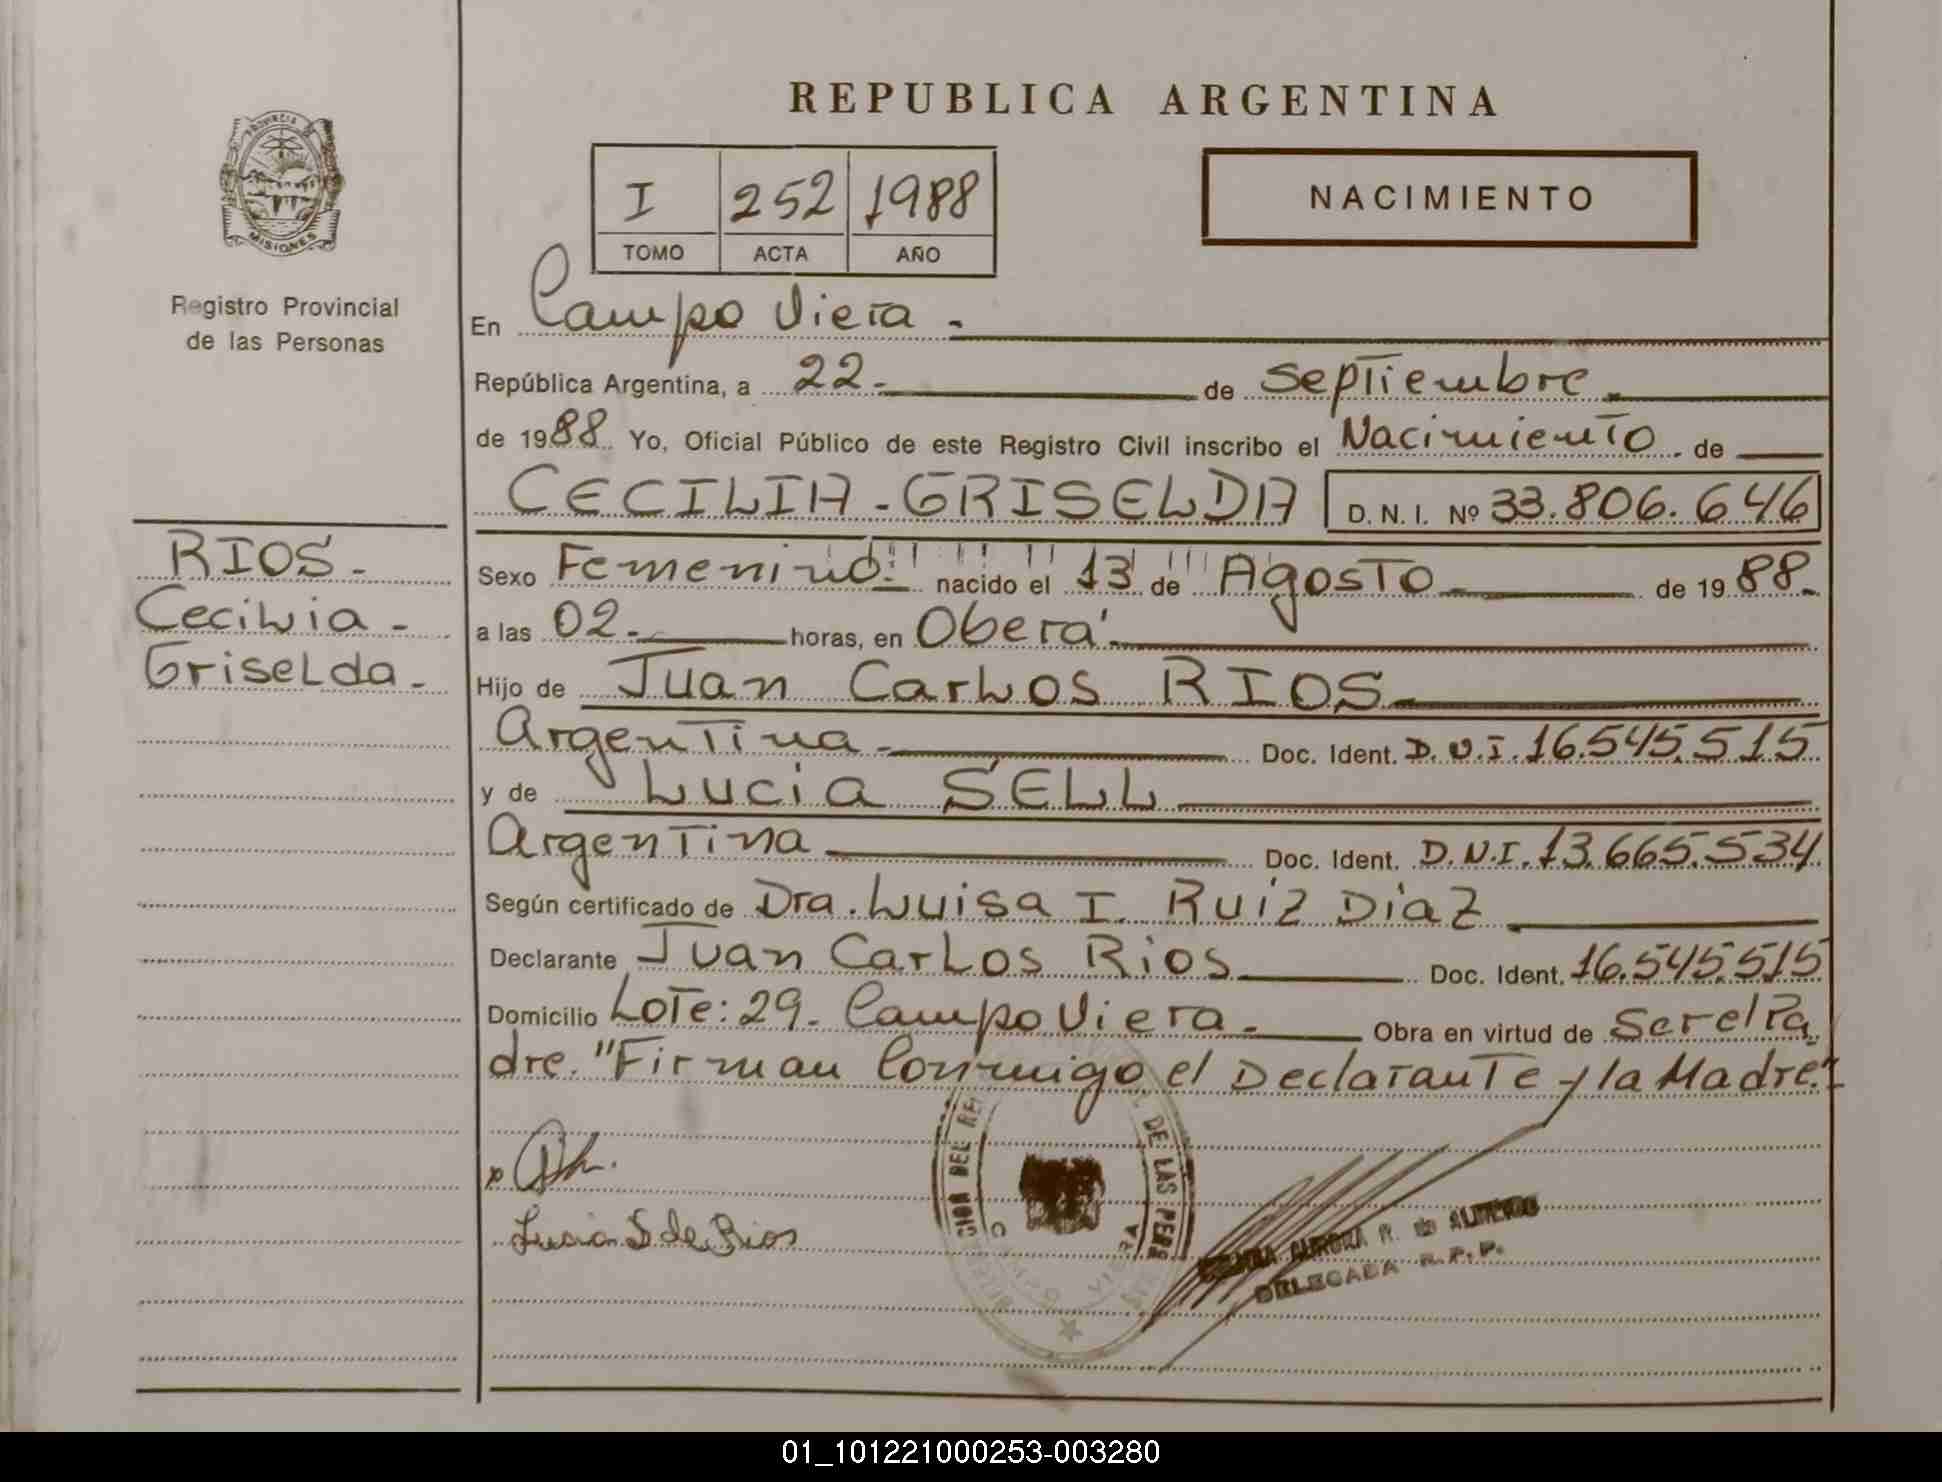 REPUBLICA ARGENTINA
PROVINCIA DE
MISIONES
Registro Provincial
de las Personas
I 252 1988
TOMO ACTA AÑO
NACIMIENTO
En Campo Viera -
República Argentina, a 22 - de Septiembre
de 1988 Yo, Oficial Público de este Registro Civil inscribo el Nacimiento . de
CECILIA - GRISELDA D. N. I. Nº 33.806.646
RIOS -
Cecilia -
Griselda -
Sexo Femenino nacido el 13 de Agosto de 1988.-
a las 02 - horas, en Oberá
Hijo de Juan Carlos RIOS
Argentina - Doc. Ident. D.N.I. 16.545.515
y de Lucia SELL
Argentina Doc. Ident. D.N.I. 13.665.534
Según certificado de Dra. Luisa I. Ruiz Diaz
Declarante Juan Carlos Rios Doc. Ident. 16.545.515
Domicilio Lote: 29 - Campo Viera - Obra en virtud de SerelPa
dre. "Firman Conmigo el Declarante y la Madre"
Lucia S de Rios
DEL DE LAS PERS
AURORA R. de
DELEGADA R. P. P.
01_101221000253-003280